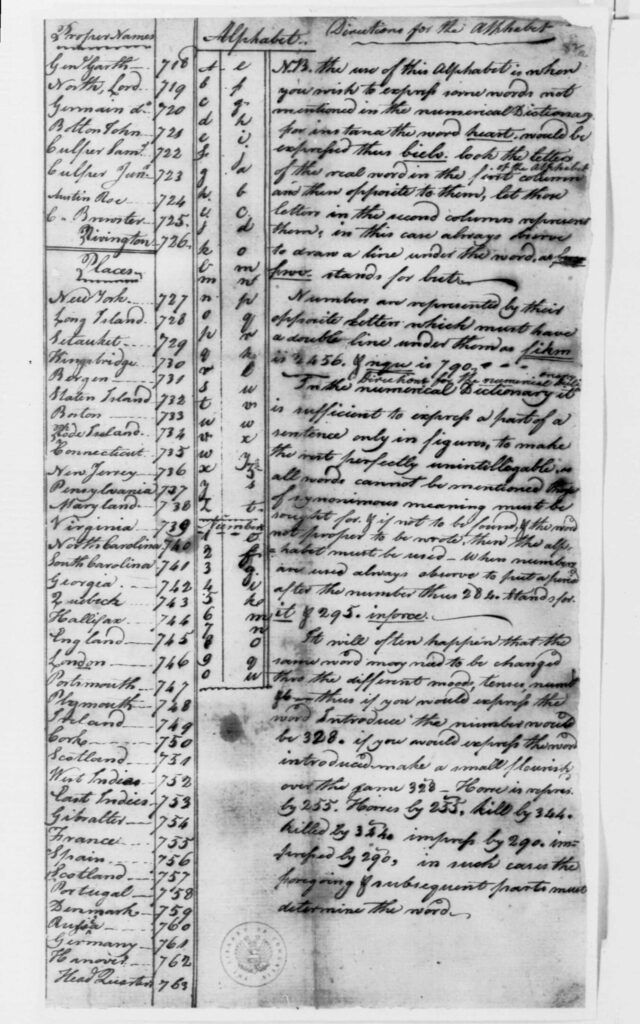 Proper Names
Genl Garth 718
North, Lord 719
Germain do. 720
Bolton John 721
Culper Saml. 722
Culper Junr. 723
Austin Roe 724
C. Brewster 725.
Rivington 726.
Places
New York 727
Long Island 728
Setauket 729
Kingsbridge 730
Bergen 731
Staten Island 732
Boston 733
Rode Island 734
Connecticut 735
New Jersey 736
Pensylvania 737
Maryland 738
Virginia 739
North Carolina 740
South Carolina 741
Georgia 742
Quebeck 743
Hallifax 744
England 745
London 746
Portsmouth 747
Plymouth 748
Ireland 749
Cork 750
Scotland 751
West Indies 752
East Indies 753
Gibralter 754
France 755
Spain 756
Scotland 757
Portugal 758
Denmark 759
Russia 760
Germany 761
Hanover 762
Head Quarters 763
Alphabet.
a e
b f
c g
d h
e i
f j
g a
h b
i c
j d
k o
l m
m n
n p
o q
p r
q k
r l
s u
t v
u w
v x
w y
x z
y s
z t
Numbers
1 e
2 f
3 g
4 i
5 k
6 m
7 n
8 o
9 q
0 u
Directions for the Alphabet
N.B. the use of this Alphabet is when
you wish to express some words not
mentioned in the numerical Dictionary
for instance the word heart. would be
expressed thus bielv. look the letters
of the real word in the first column of the Alphabet
and then opposite to them, let those
letters in the second column represent
them, in this case always observe
to draw a line under the word, as
fwv. stands for but.
Numbers are represented by their
opposite letters which must have
a double line under them as fikm
is 2456. & nqu is 790.
Directions for the numerical
In the numerical Dictionary it
is sufficient to express a part of a
sentence only in figures, to make
the rest perfectly unintillegable, as
all words cannot be mentioned those
of synonimous meaning must be
sought for. & if not to be found, & the word
not proper to be wrote. then the alp-
habet must be used - When numbers
are used always observe to put a period
after the number thus 284. stands for
it & 295. inforce.
It will often happen that the
same word may need to be changed
thro the different moods, tenses, numbers
&c - thus if you would express the
word Introduce the number would
be 328. if you would express the word
introduced make a small flourish
over the same 328 - Horse is repres.
by 255. Horses by 255. kill by 344.
killed by 344. impress by 290. im-
pressed by 290, in such cases the
foregoing & subsequent parts must
determine the word.